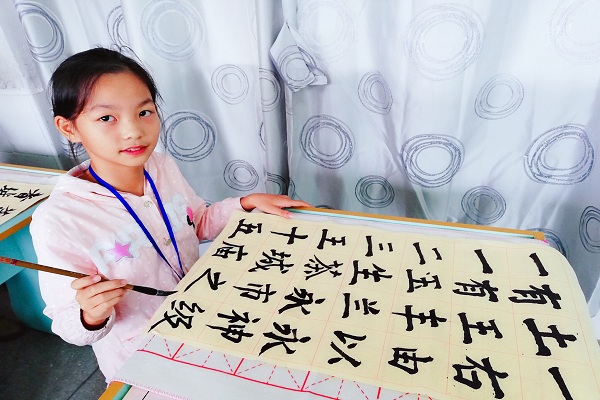 一有土一
一有五右
二五丰由
三生兰以
王茶永永
十城市神
五庙之级